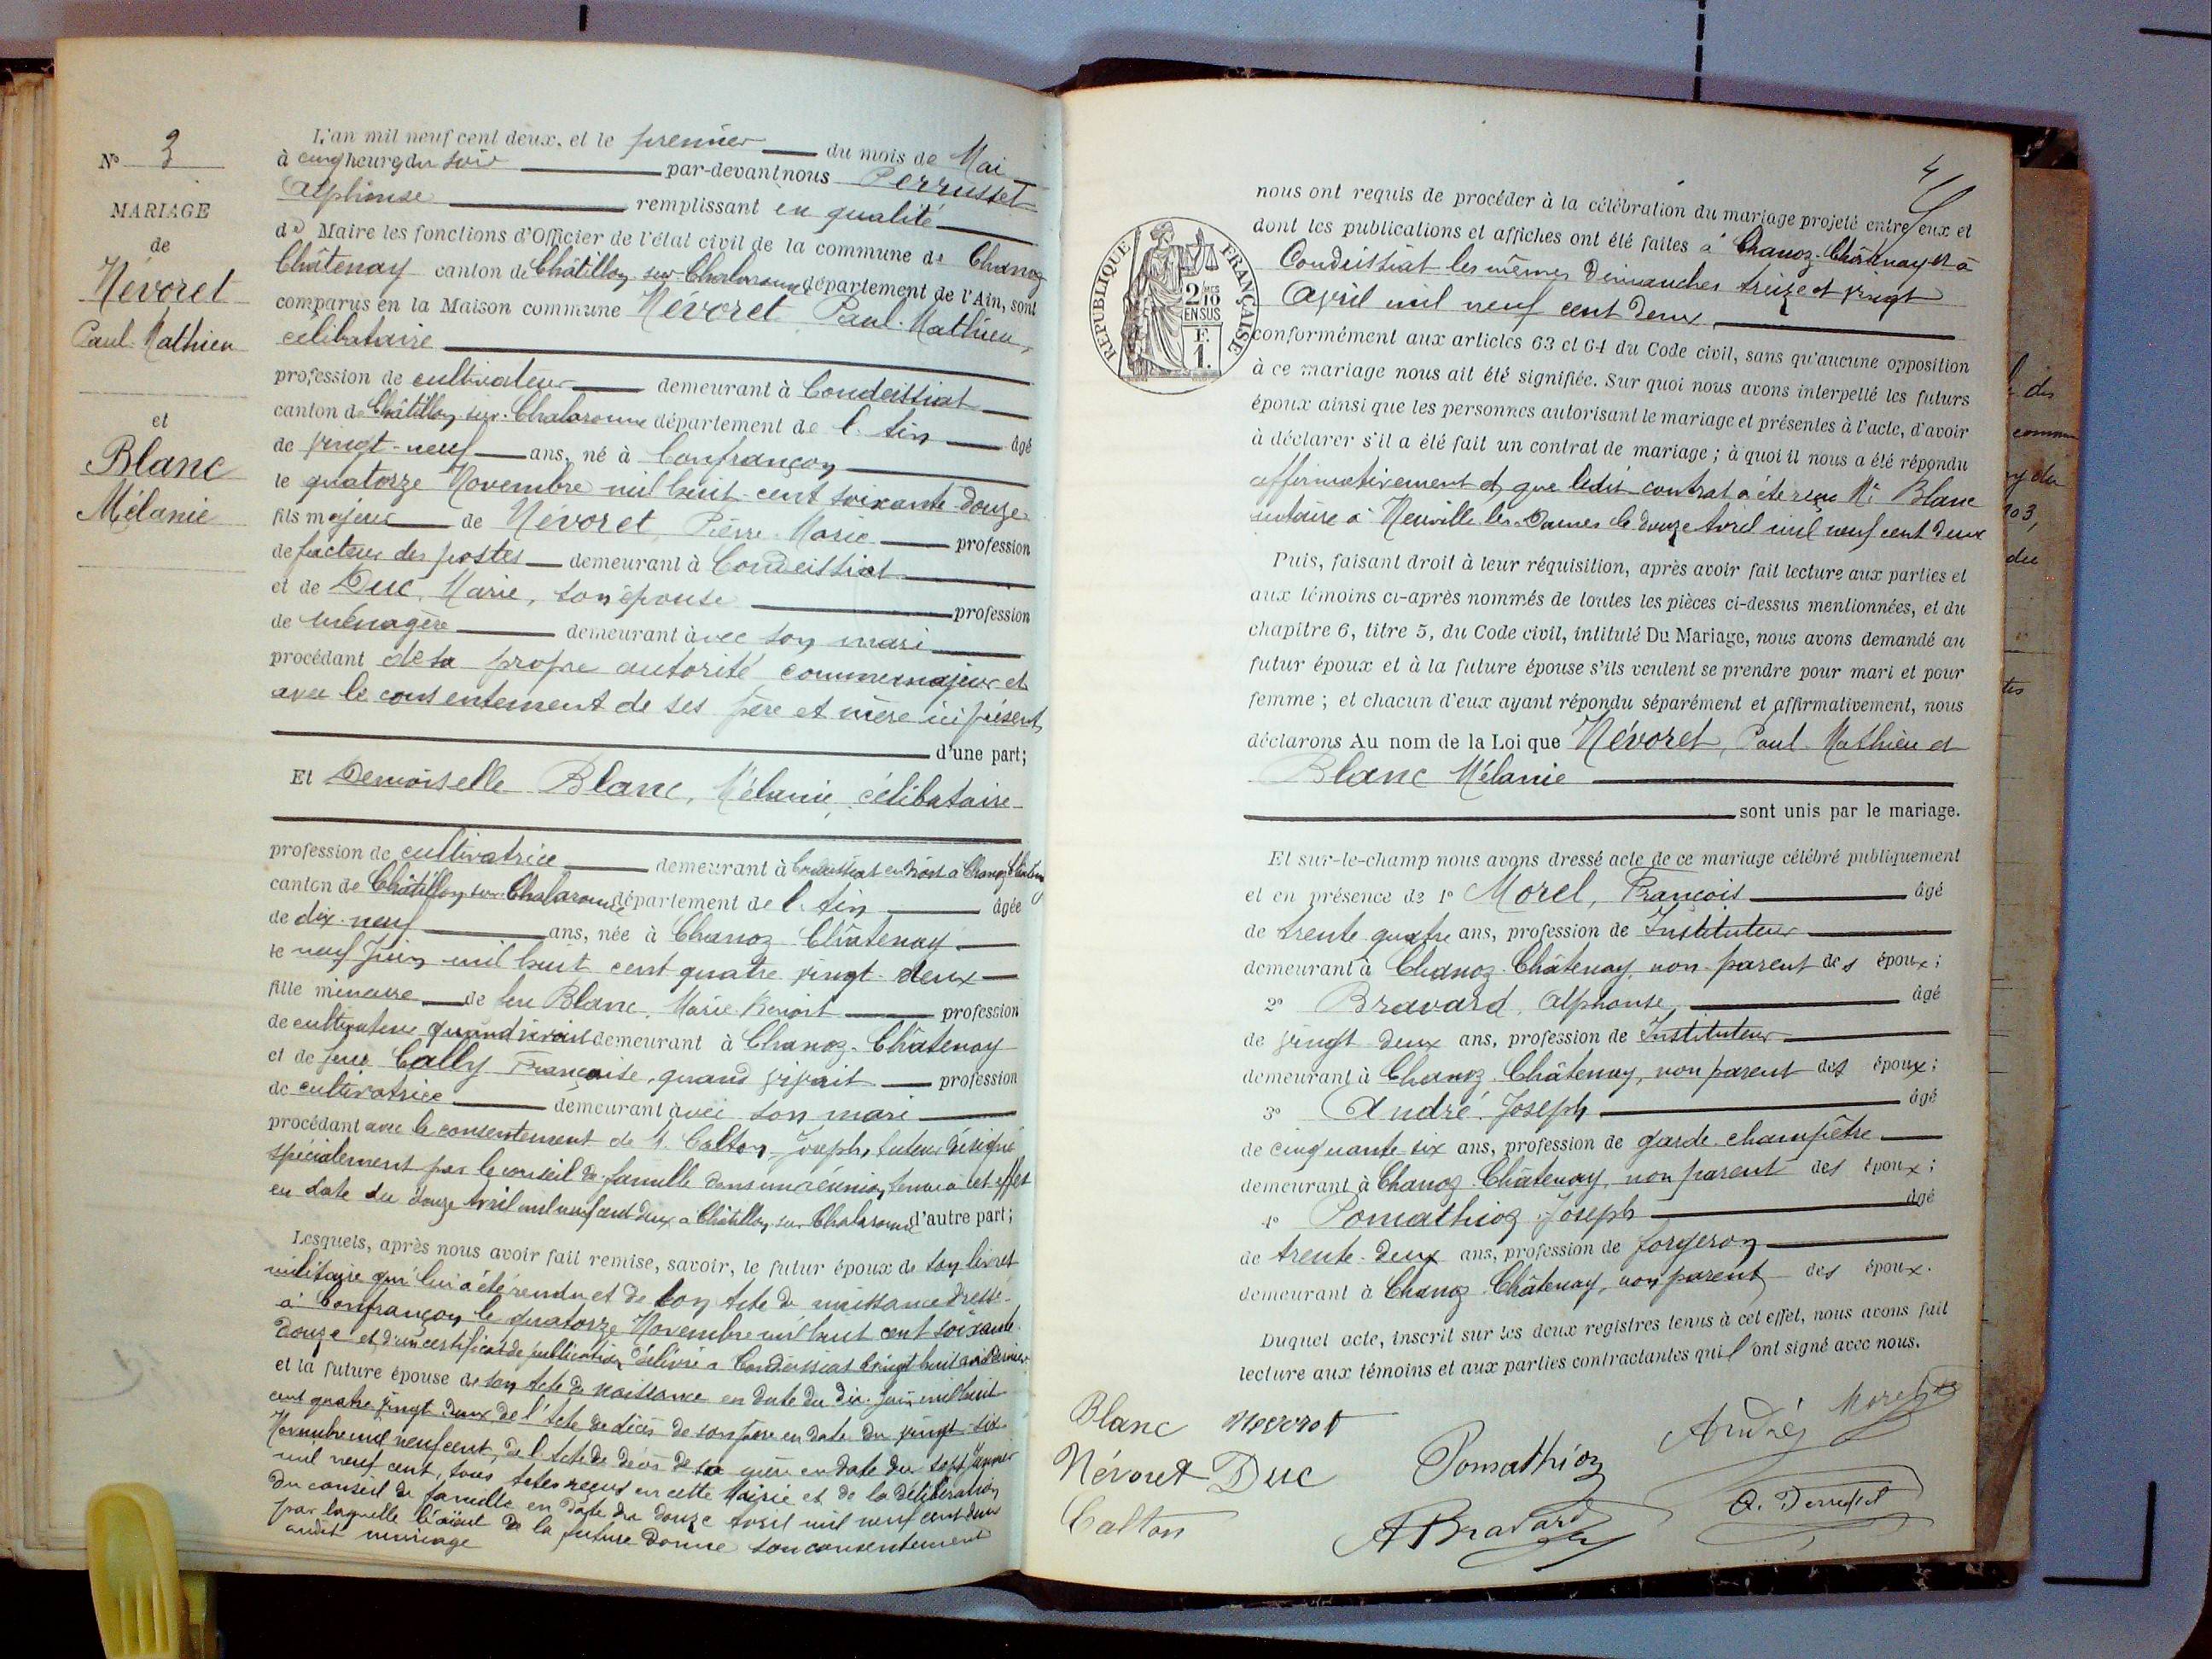 N° 3
MARIAGE
de
Névoret
Paul-Mathieu
et
Blanc
Mélanie
L'an mil neuf cent deux, et le premier du mois de Mai
à cinq heures du soir par-devant nous Perrusset
Alphonse remplissant en qualité
de Maire les fonctions d'Officier de l'état civil de la commune de Chanoz
Châtenay canton de Châtillon-sur-Chalaronne département de l'Ain, sont
comparus en la Maison commune Névoret Paul-Mathieu,
célibataire
profession de cultivateur demeurant à Condeissiat
canton de Châtillon-sur-Chalaronne département de l'Ain âgé
de vingt-neuf ans, né à Confrançon
le quatorze Novembre mil huit-cent soixante-douze
fils majeur de Névoret, Pierre-Marie profession
de facteur des postes demeurant à Condeissiat
et de Duc, Marie, son épouse profession
de ménagère demeurant avec son mari
procédant de sa propre autorité comme majeur et
avec le consentement de ses père et mère ici présents
d'une part;
Et Demoiselle Blanc, Mélanie, célibataire
profession de cultivatrice demeurant à Condeissiat en droit à Chanoz Châtenay
canton de Châtillon-sur-Chalaronne département de l'Ain âgée
de dix-neuf ans, née à Chanoz-Châtenay
le neuf Juin mil huit cent quatre-vingt-deux
fille mineure de feu Blanc, Marie-Benoit profession
de cultivateur quand vivait demeurant à Chanoz-Châtenay
et de feue Cally Françoise, quand vivait profession
de cultivatrice demeurant avec son mari
procédant avec le consentement de M. Calton Joseph, tuteur désigné
spécialement par le conseil de famille dans une réunion tenue à cet effet
en date du douze Avril mil neuf cent deux à Châtillon-sur-Chalaronne d'autre part;
Lesquels, après nous avoir fait remise, savoir, le futur époux de son livret
militaire qui lui a été rendu et de son acte de naissance dressé
à Confrançon le quatorze Novembre mil huit cent soixante
douze et d'un certificat de publication délivré à Condeissiat le vingt huit avril dernier
et la future épouse de son acte de naissance en date du dix Juin mil huit
cent quatre vingt deux, de l'acte de décès de son père en date du vingt-six
Novembre mil neuf cent, de l'acte de décès de sa mère en date du sept Janvier
mil neuf cent, tous actes reçus en cette Mairie et de la délibération
du conseil de famille en date du douze Avril mil neuf cent deux
par laquelle l'aïeul de la future donne son consentement
audit mariage
4
REPUBLIQUE FRANÇAISE
2/10 EN SUS
F. 1.
nous ont requis de procéder à la célébration du mariage projeté entre eux et
dont les publications et affiches ont été faites à Chanoz-Châtenay et à
Condeissiat les mêmes dimanches treize et vingt
Avril mil neuf cent deux
conformément aux articles 63 et 64 du Code civil, sans qu'aucune opposition
à ce mariage nous ait été signifiée. Sur quoi nous avons interpellé les futurs
époux ainsi que les personnes autorisant le mariage et présentes à l'acte, d'avoir
à déclarer s'il a été fait un contrat de mariage ; à quoi il nous a été répondu
affirmativement et que ledit contrat a été reçu Me Blanc
notaire à Neuville-les-Dames le douze Avril mil neuf cent deux
Puis, faisant droit à leur réquisition, après avoir fait lecture aux parties et
aux témoins ci-après nommés de toutes les pièces ci-dessus mentionnées, et du
chapitre 6, titre 5, du Code civil, intitulé Du Mariage, nous avons demandé au
futur époux et à la future épouse s'ils veulent se prendre pour mari et pour
femme ; et chacun d'eux ayant répondu séparément et affirmativement, nous
déclarons Au nom de la Loi que Névoret, Paul-Mathieu et
Blanc Mélanie
sont unis par le mariage.
Et sur-le-champ nous avons dressé acte de ce mariage célébré publiquement
et en présence de 1° Morel, François âgé
de trente quatre ans, profession de Instituteur
demeurant à Chanoz-Châtenay, non parent des époux;
2° Bravard, Alphonse, âgé
de vingt deux ans, profession de Instituteur
demeurant à Chanoz-Châtenay, non parent des époux;
3° André Joseph âgé
de cinquante six ans, profession de garde-champêtre
demeurant à Chanoz-Châtenay, non parent des époux;
4° Pomathioz Joseph âgé
de trente-deux ans, profession de forgeron
demeurant à Chanoz-Châtenay, non parent des époux.
Duquel acte, inscrit sur les deux registres tenus à cet effet, nous avons fait
lecture aux témoins et aux parties contractantes qui l'ont signé avec nous.
Blanc Nevoret André Morel
Névoret Duc Pomathioz
Calton A Bravard A. Perrusset